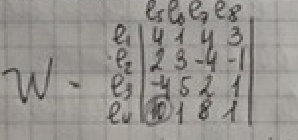 e5 e6 e7 e8
e1 4 1 4 3
e2 2 3 -4 -1
W - e3 -4 5 2 1
e4 10 1 8 1